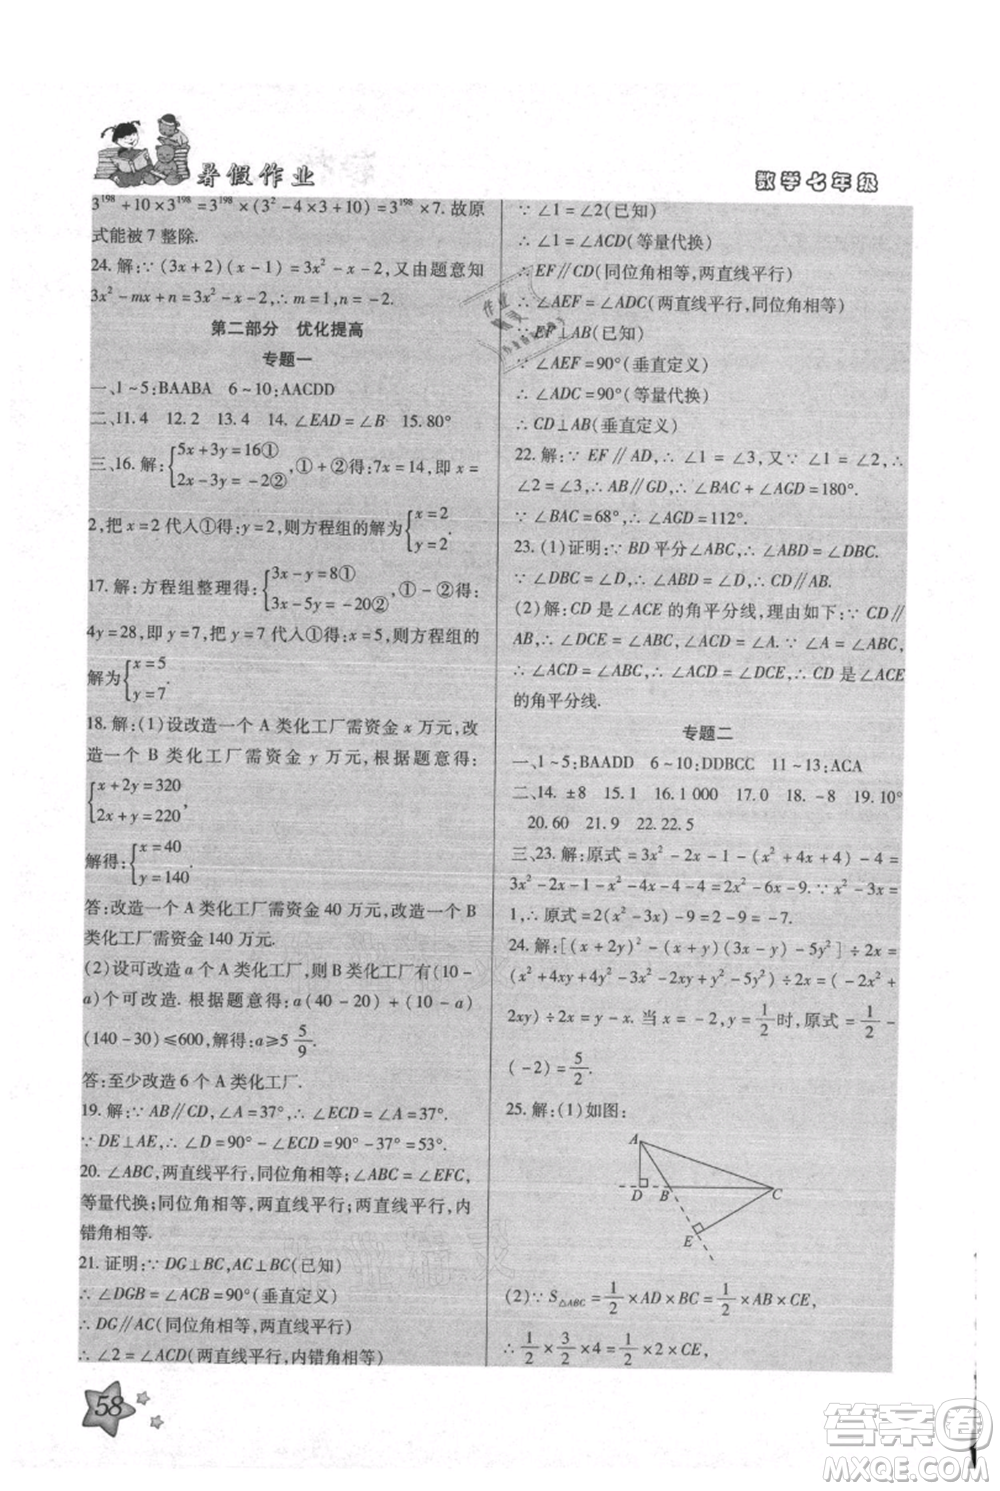 暑假作业
数学七年级
3^198+10×3^198=3^198×(3²-4×3+10)=3^198×7.故原
式能被7整除.
24.解:∵(3x+2)(x-1)=3x²-x-2,又由题意知
3x²-mx+n=3x²-x-2,∴m=1,n=-2.
第二部分 优化提高
专题一
一、1~5:BAABA 6~10:AACDD
二、11.4 12.2 13.4 14.∠EAD=∠B 15.80°
三、16.解:{5x+3y=16① 2x-3y=-2②,①+②得:7x=14,即x=
2,把x=2代入①得:y=2,则方程组的解为{x=2 y=2.
17.解:方程组整理得:{3x-y=8① 3x-5y=-20②,①-②得:
4y=28,即y=7,把y=7代入①得:x=5,则方程组的
解为{x=5 y=7.
18.解:(1)设改造一个A类化工厂需资金x万元,改
造一个B类化工厂需资金y万元,根据题意得:
{x+2y=320 2x+y=220,
解得:{x=40 y=140.
答:改造一个A类化工厂需资金40万元,改造一个B
类化工厂需资金140万元.
(2)设可改造a个A类化工厂,则B类化工厂有(10-
a)个可改造.根据题意得:a(40-20)+(10-a)
(140-30)≤600,解得:a≥5 5/9.
答:至少改造6个A类化工厂.
19.解:∵AB∥CD,∠A=37°,∴∠ECD=∠A=37°.
∵DE⊥AE,∴∠D=90°-∠ECD=90°-37°=53°.
20.∠ABC,两直线平行,同位角相等;∠ABC=∠EFC,
等量代换;同位角相等,两直线平行;两直线平行,内
错角相等.
21.证明:∵DG⊥BC,AC⊥BC(已知)
∴∠DGB=∠ACB=90°(垂直定义)
∴DG∥AC(同位角相等,两直线平行)
∴∠2=∠ACD(两直线平行,内错角相等)
58
∵∠1=∠2(已知)
∴∠1=∠ACD(等量代换)
∴EF∥CD(同位角相等,两直线平行)
∴∠AEF=∠ADC(两直线平行,同位角相等)
∵EF⊥AB(已知)
∴∠AEF=90°(垂直定义)
∴∠ADC=90°(等量代换)
∴CD⊥AB(垂直定义)
22.解:∵EF∥AD,∴∠2=∠3,又∵∠1=∠2,∴
∠1=∠3,∴AB∥GD,∴∠BAC+∠AGD=180°.
∵∠BAC=68°,∴∠AGD=112°.
23.(1)证明:∵BD平分∠ABC,∴∠ABD=∠DBC.
∵∠DBC=∠D,∴∠ABD=∠D,∴CD∥AB.
(2)解:CD是∠ACE的角平分线,理由如下:∵CD∥
AB,∴∠DCE=∠ABC,∠ACD=∠A.∵∠A=
∠ABC,∴∠ACD=∠ABC=∠DCE,∴CD是∠ACE
的角平分线.
专题二
一、1~5:BAADD 6~10:DDBCC 11~13:ACA
二、14.±8 15.1 16.1 000 17.0 18.-8 19.10°
20.60 21.9 22.22.5
三、23.解:原式=3x²-2x-1-(x²+4x+4)-4=
3x²-2x-1-x²-4x-4-4=2x²-6x-9.∵x²-3x=
1,∴原式=2(x²-3x)-9=2-9=-7.
24.解:[(x+2y)²-(x+y)(3x-y)-5y²]÷2x=
(x²+4xy+4y²-3x²-2xy+y²-5y²)÷2x=(-2x²+
2xy)÷2x=-x+y.当x=-2,y=1/2时,原式=1/2-
(-2)=5/2.
25.解:(1)如图:
A
D B C
E
(2)∵S△ABC=1/2×AD×BC=1/2×AB×CE,
∴1/2×3/2×4=1/2×2×CE,
答案卷
MXQE.COM